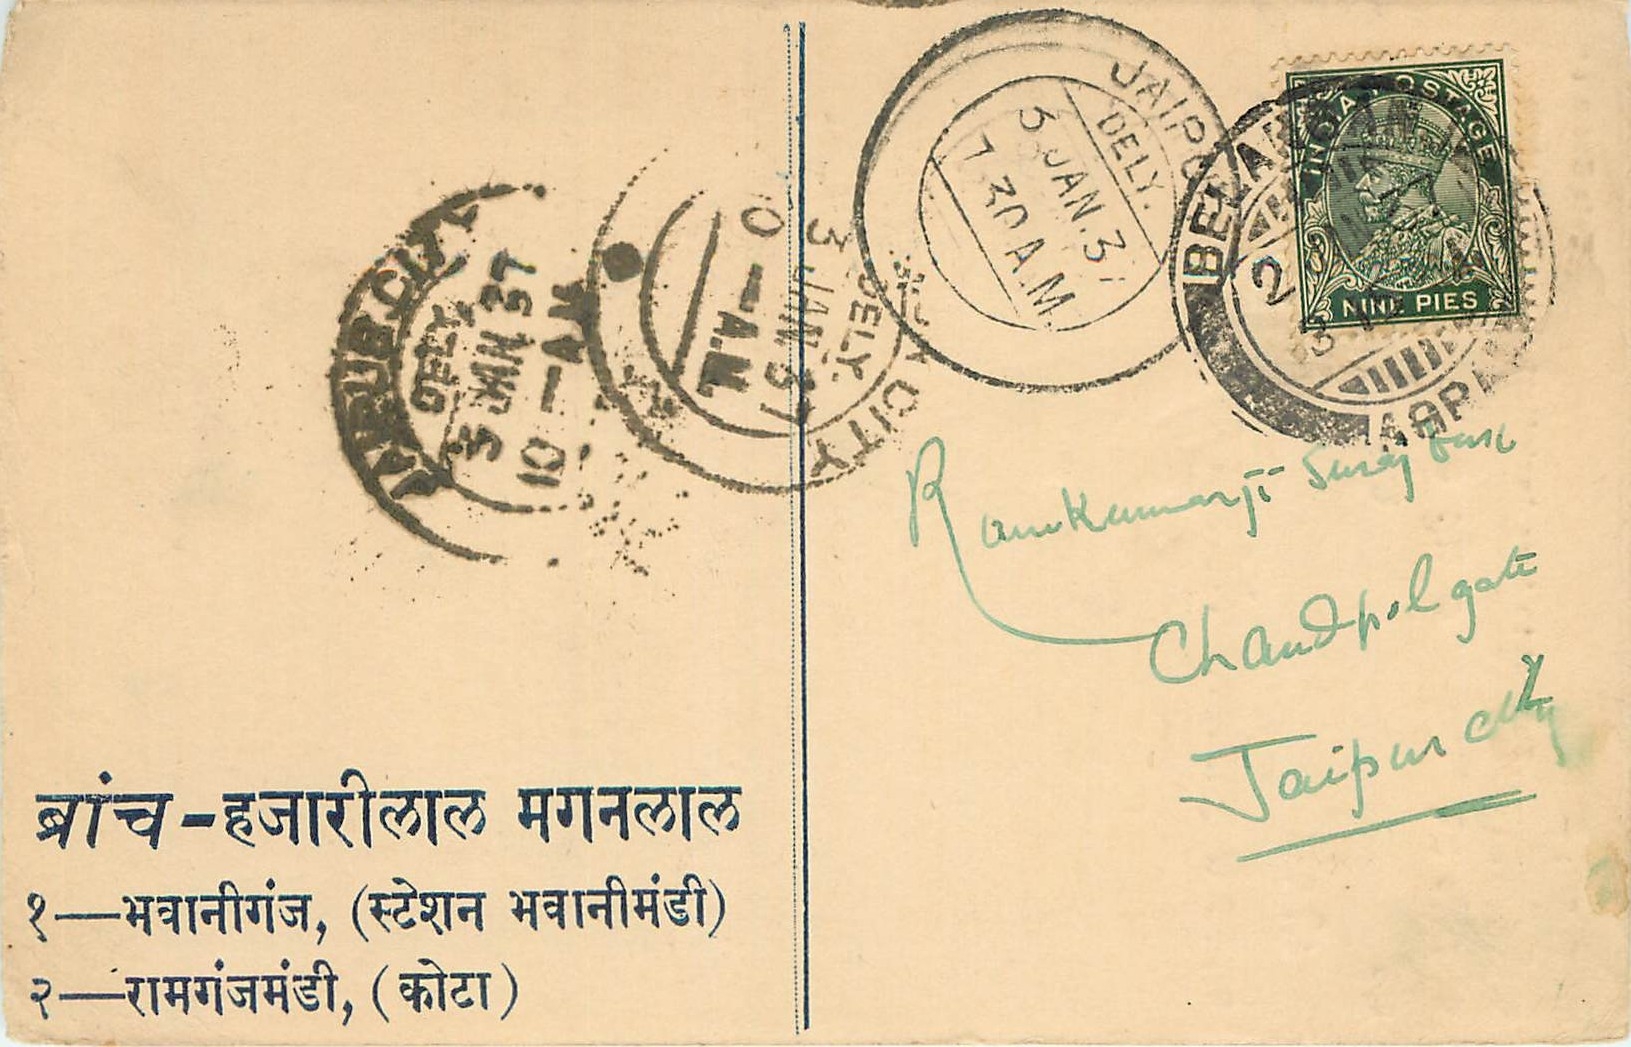 INDIA POSTAGE
NINE PIES
JAIPUR
DELY.
JAN.37
7.30 A.M.
JAIPUR CITY
DELY.
3 JAN 37
10—A.M.
CITY
DELY.
3 JAN 37
10—A.M.
Ramkumarji Suraj bux
Chandpol gate
Jaipur city
ब्रांच-हजारीलाल मगनलाल
१—भवानीगंज, (स्टेशन भवानीमंडी)
२—रामगंजमंडी, (कोटा)